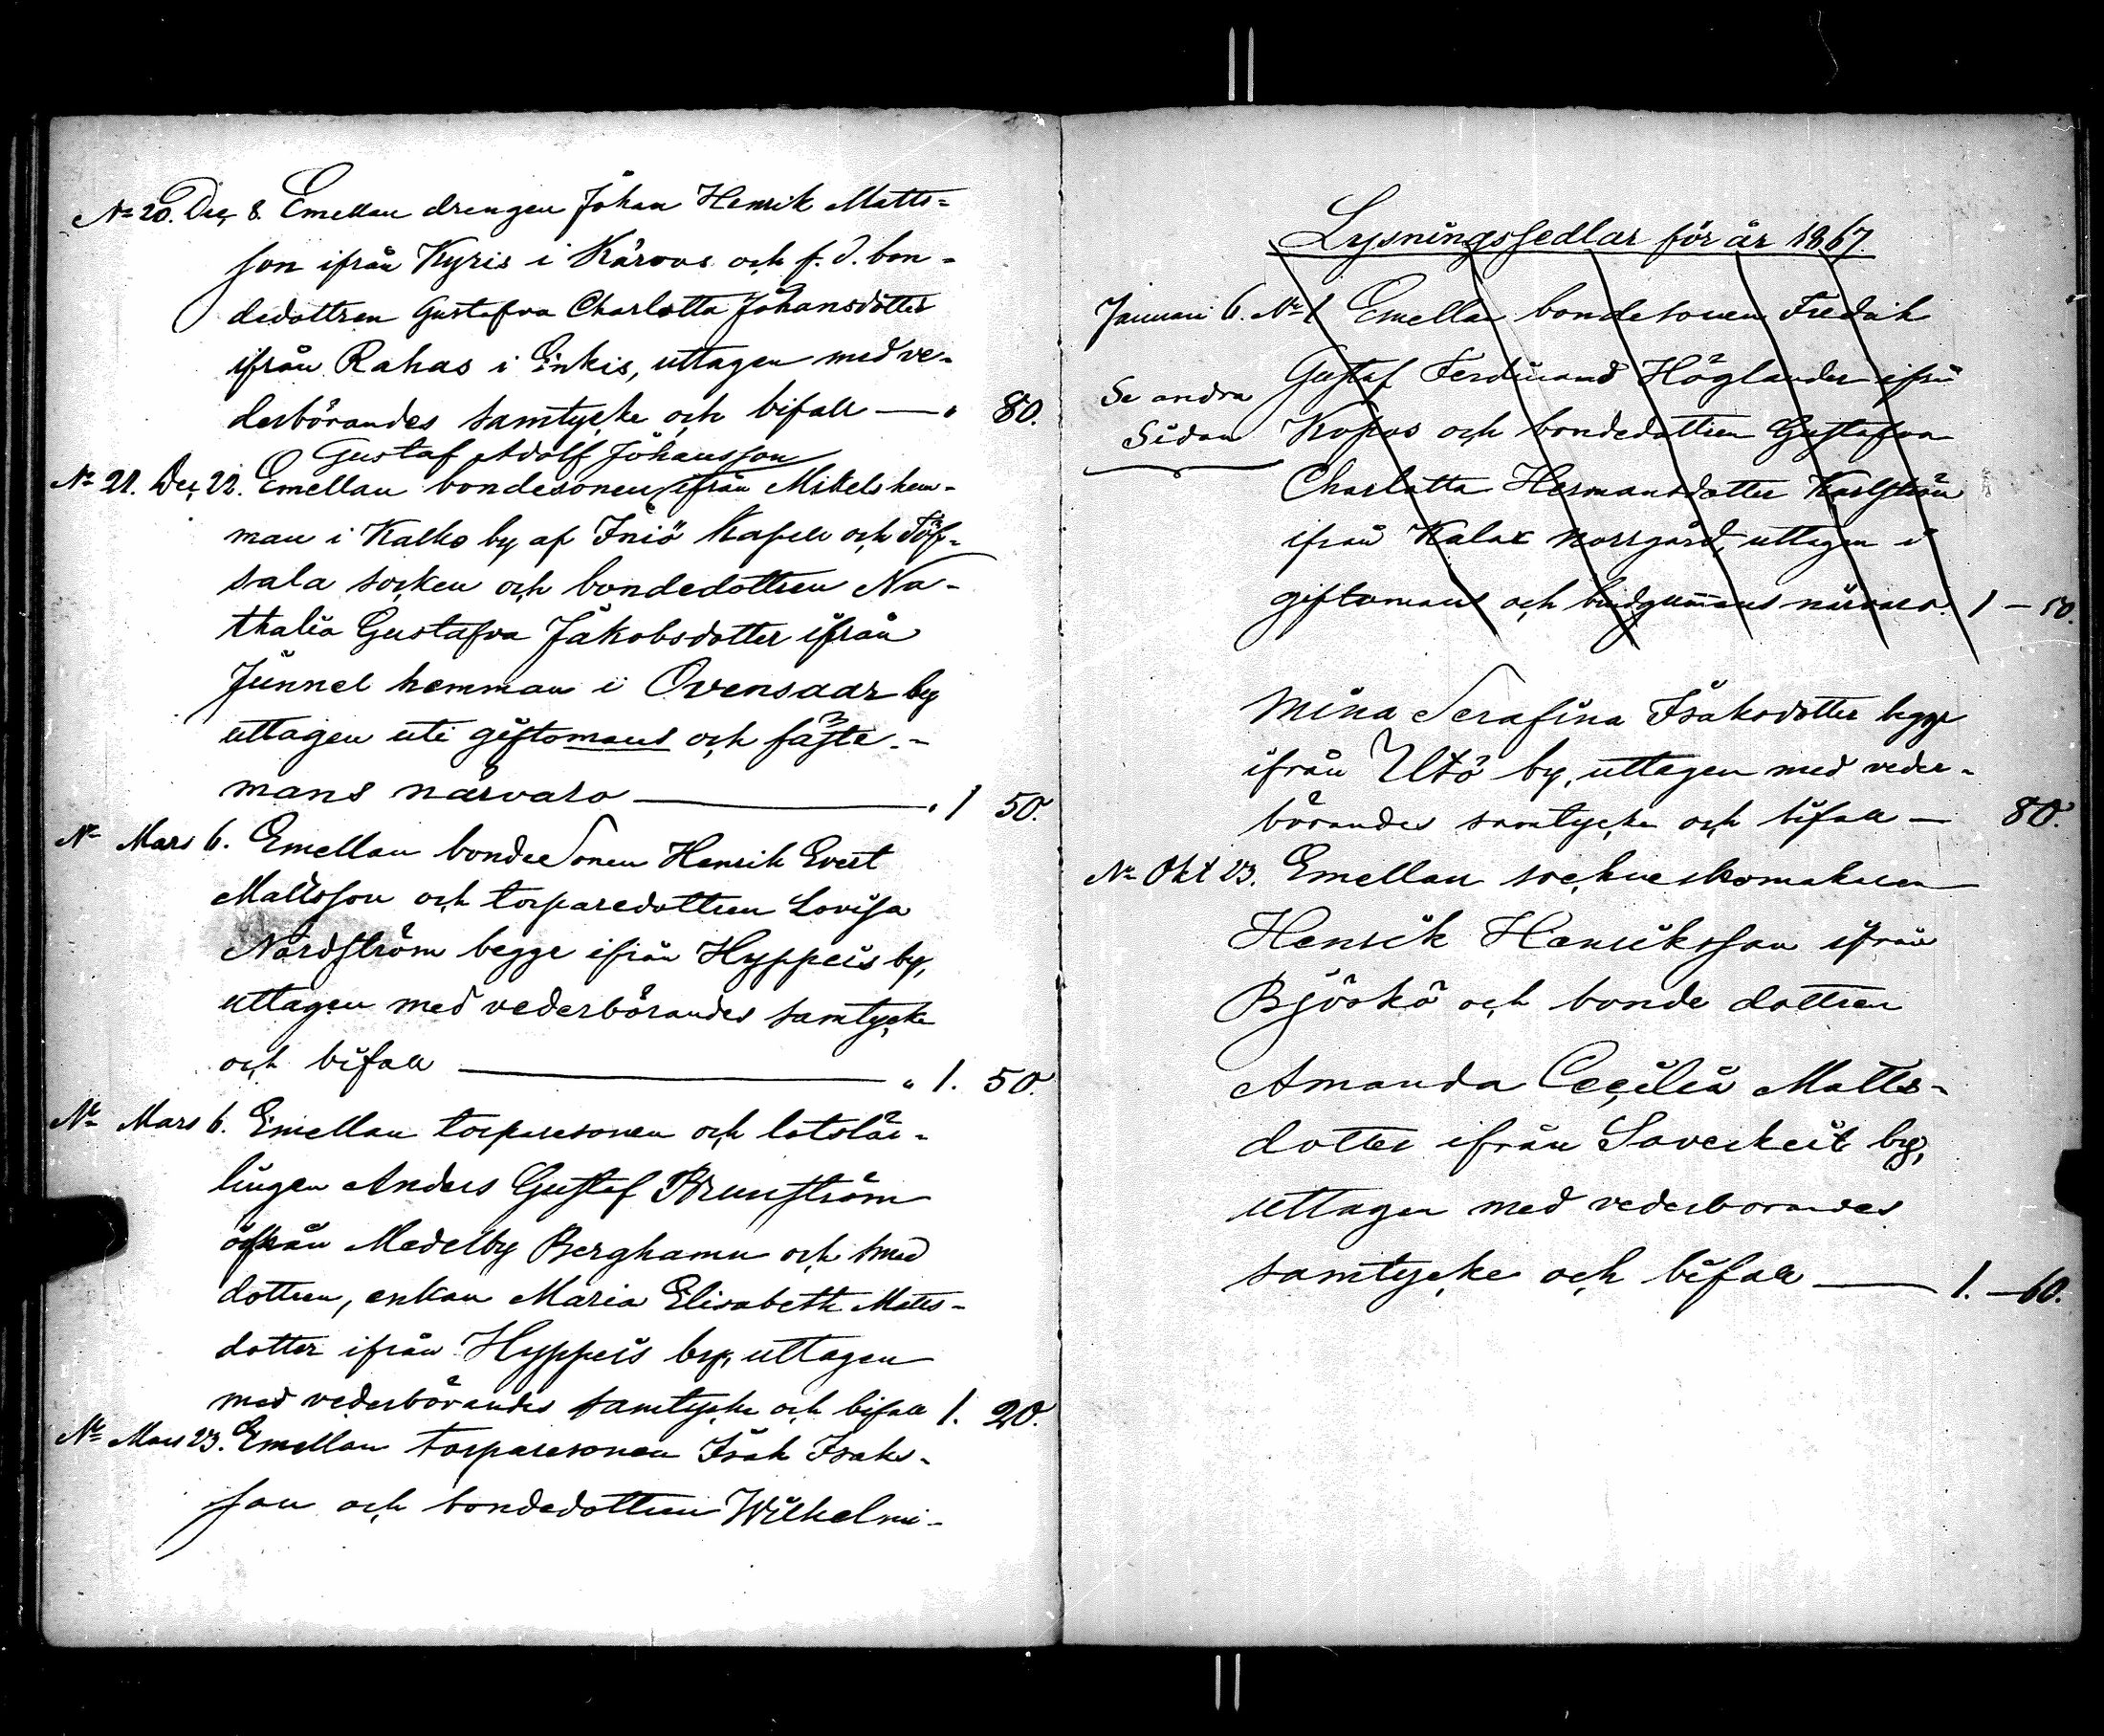 No 20. Dec 8. Emellan drengen Johan Henrik Matts-
son ifrån Kyris i Kärvas och f. d. bon-
dedottren Gustafva Charlotta Johansdotter
ifrån Rahas i Enkis, uttagen med ve-
derbörandes samtycke och bifall — " 80.
Gustaf Adolf Johansson
No 21. Dec 22. Emellan bondesonen ifrån Mikels hem-
man i Kalko by af Iniö Kapell och Töf-
sala socken och bondedottren Na-
thalia Gustafva Jakobsdotter ifrån
Junnel hemman i Ovensaar by
uttagen uti giftomans och fäste-
mans närvaro — " 1 50.
No Mars 6. Emellan bondesonen Henrik Evert
Mattsson och torparedottren Lovisa
Nordström begge ifrån Hyppeis by,
uttagen med vederbörandes samtycke
och bifall — " 1. 50.
No Mars 6. Emellan torparesonen och lotslär-
lingen Anders Gustaf Brunström
ifrån Medelby Berghamn och smed
dottren, enkan Maria Elisabeth Matts-
dotter ifrån Hyppeis by, uttagen
med vederbörandes samtycke och bifall 1. 20.
No Mars 23. Emellan torparesonen Isak Isaks-
son och bondedottren Wilhelmi-
Lysningssedlar för år 1867.
Januari 6. No 1 Emellan bondesonen Fredrik
Se andra
Sidan
Gustaf Ferdinand Höglander ifrån
Kopos och bondedottren Gustafva
Charlotta Hermansdotter Karlström
ifrån Kalax Norrgård, uttagen i
giftomans och brudgummans närvaro. 1 — 50.
Mina Serafina Isaksdotter begge
ifrån Utö by, uttagen med veder-
börandes samtycke och bifall — 80.
No Okt 23. Emellan sockneskomakaren
Henrik Henriksson ifrån
Björkö och bonde dottren
Amanda Cecilia Matts-
dotter ifrån Saverkeit by,
uttagen med vederborandes
samtycke och bifall — 1. — 60.